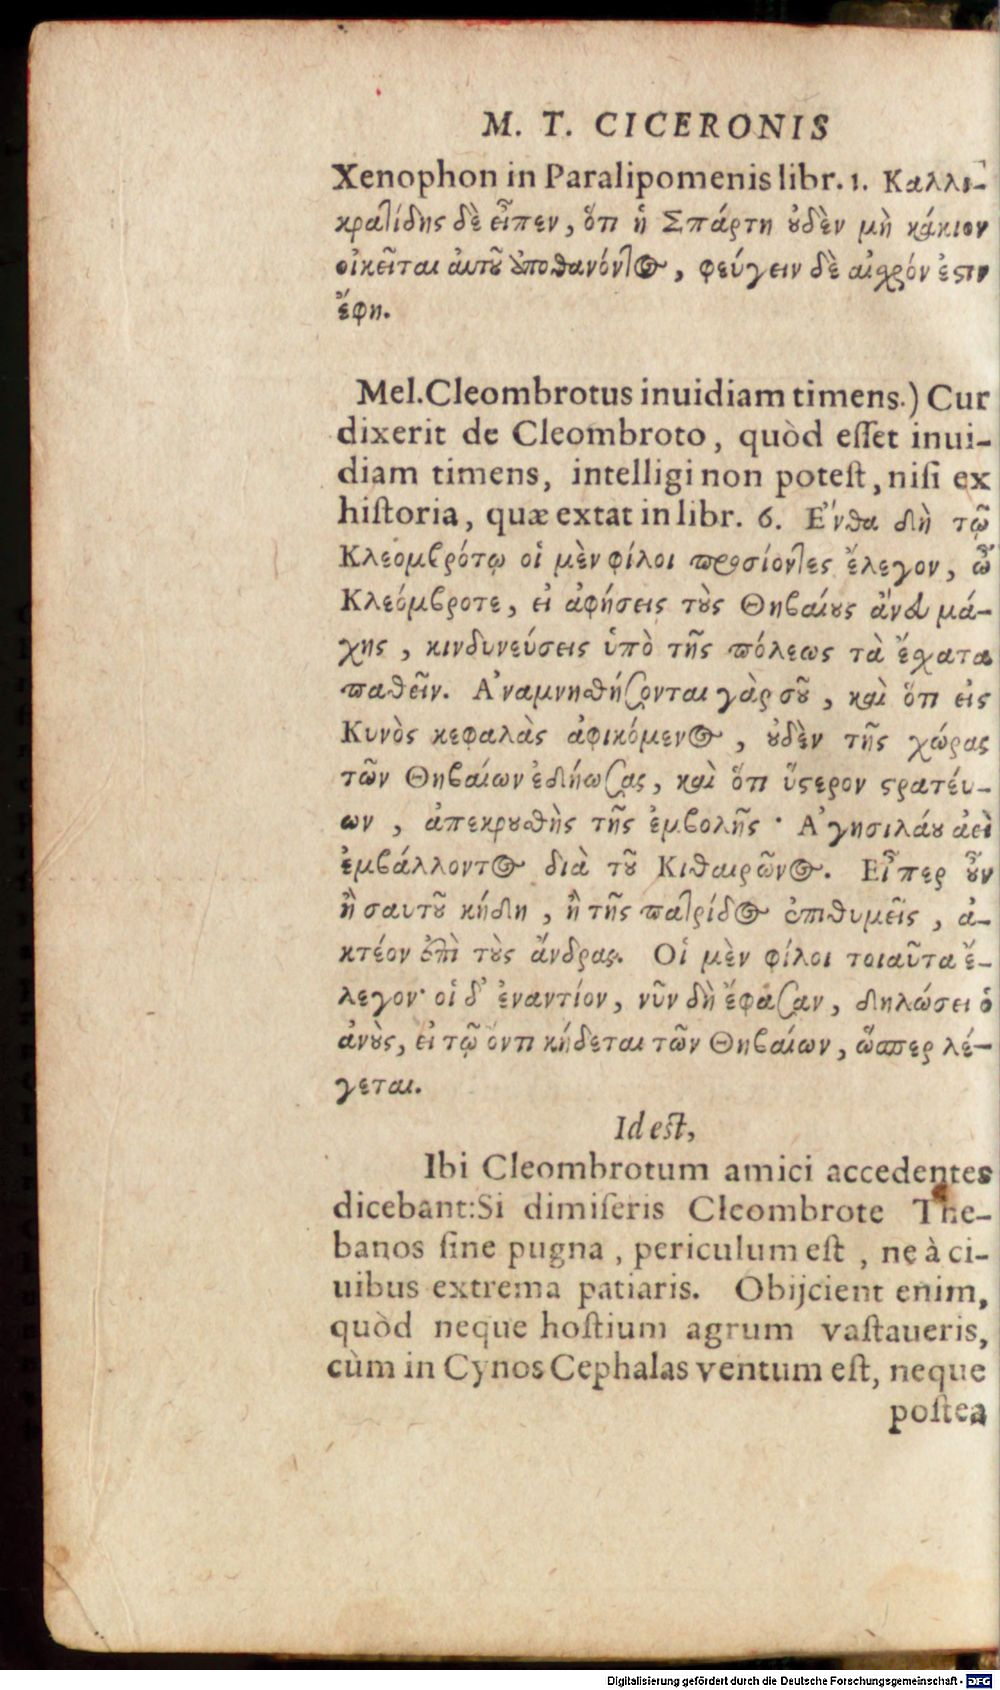 M. T. CICERONIS
Xenophon in Paralipomenis libr. 1. Καλλι-
κρατίδης δὲ εἶπεν, ὅτι ἡ Σπάρτη οὐδὲν μὴ κάκιον
οἰκεῖται αὐτοῦ ἀποθανόντος, φεύγειν δὲ αἰσχρόν ἐστιν
ἔφη.
Mel. Cleombrotus inuidiam timens.) Cur
dixerit de Cleombroto, quòd eſſet inui-
diam timens, intelligi non poteſt, niſi ex
hiſtoria, quæ extat in libr. 6. Ἔνθα δὴ τῷ
Κλεομβρότῳ οἱ μὲν φίλοι προσίοντες ἔλεγον, ὦ
Κλεόμβροτε, εἰ ἀφήσεις τοὺς Θηβαίους ἄνευ μά-
χης, κινδυνεύσεις ὑπὸ τῆς πόλεως τὰ ἔσχατα
παθεῖν. Ἀναμνησθήσονται γὰρ σοῦ, καὶ ὅτι εἰς
Κυνὸς κεφαλὰς ἀφικόμενος, οὐδὲν τῆς χώρας
τῶν Θηβαίων ἐδήωσας, καὶ ὅτι ὕστερον στρατεύ-
ων, ἀπεκρούσθης τῆς ἐμβολῆς· Ἀγησιλάου ἀεὶ
ἐμβάλλοντος διὰ τοῦ Κιθαιρῶνος. Εἶπερ οὖν
ἢ σαυτοῦ κήδῃ, ἢ τῆς πατρίδος ἐπιθυμεῖς, ἀ-
κτέον ἐπὶ τοὺς ἄνδρας. Οἱ μὲν φίλοι τοιαῦτα ἔ-
λεγον· οἱ δ' ἐναντίον, νῦν δὴ ἔφασαν, δηλώσει ὁ
ἀνοὺς, εἰ τῷ ὄντι κήδεται τῶν Θηβαίων, ὥσπερ λέ-
γεται.
Id eſt,
Ibi Cleombrotum amici accedentes
dicebant: Si dimiſeris Cleombrote The-
banos ſine pugna, periculum eſt, ne à ci-
uibus extrema patiaris. Obijcient enim,
quòd neque hoſtium agrum vaſtaueris,
cùm in Cynos Cephalas ventum eſt, neque
poſtea
Digitalisierung gefördert durch die Deutsche Forschungsgemeinschaft · DFG